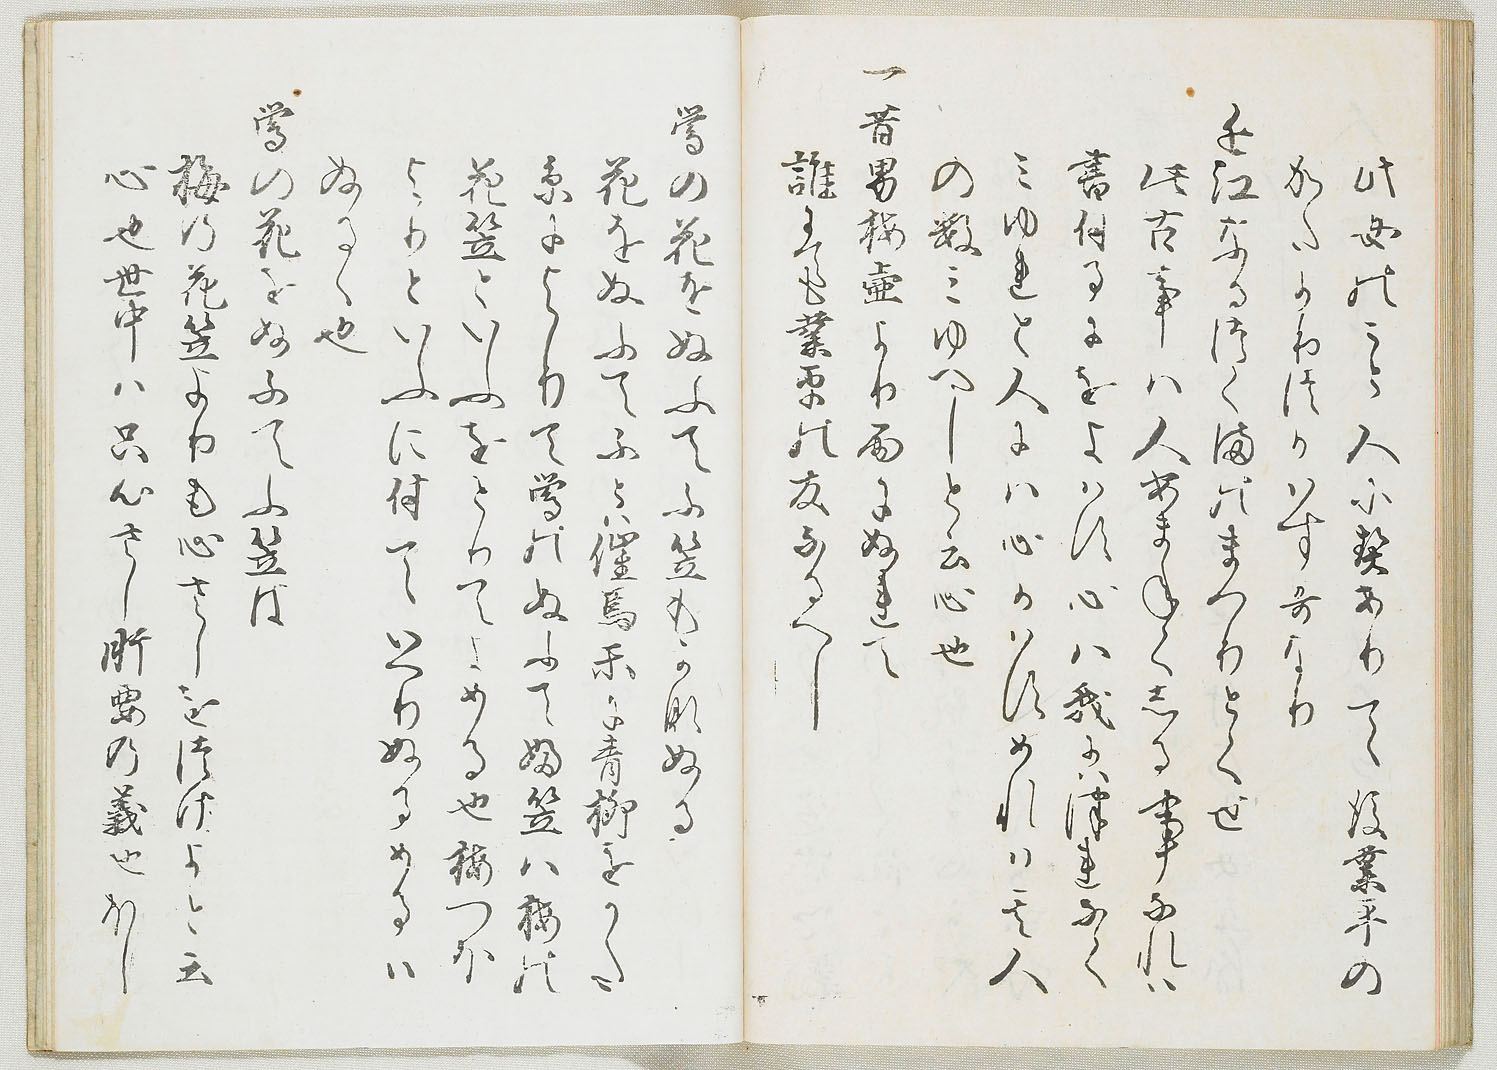 此女のこと人に契ありて後業平の
かたよりつかはす哥なり
近江なるつくまのまつりとくせ
此古事ハ人あまねくしる事なれハ
書付るにをよハす心ハ我にハつれなく
ミゆれと人にハ心かハすめれハ其人
の数ミゆへしと云心也
一昔男梅壺より雨にぬれて
誰にても業平の友なるへし
鶯の花をぬふてふ笠もかなぬる
花をぬふてふとハ催馬楽に青柳をかたミ
糸によりて鶯のぬふて婦笠ハ梅の
花笠といふをとりてよめる也梅つほ
よりといふに付ていへりぬるめるハ
ぬるゝ也
鶯の花をぬふてふ笠は
梅の花笠よりも心さしをつけよと云
心也世中ハ只心さし肝要の義也ほし